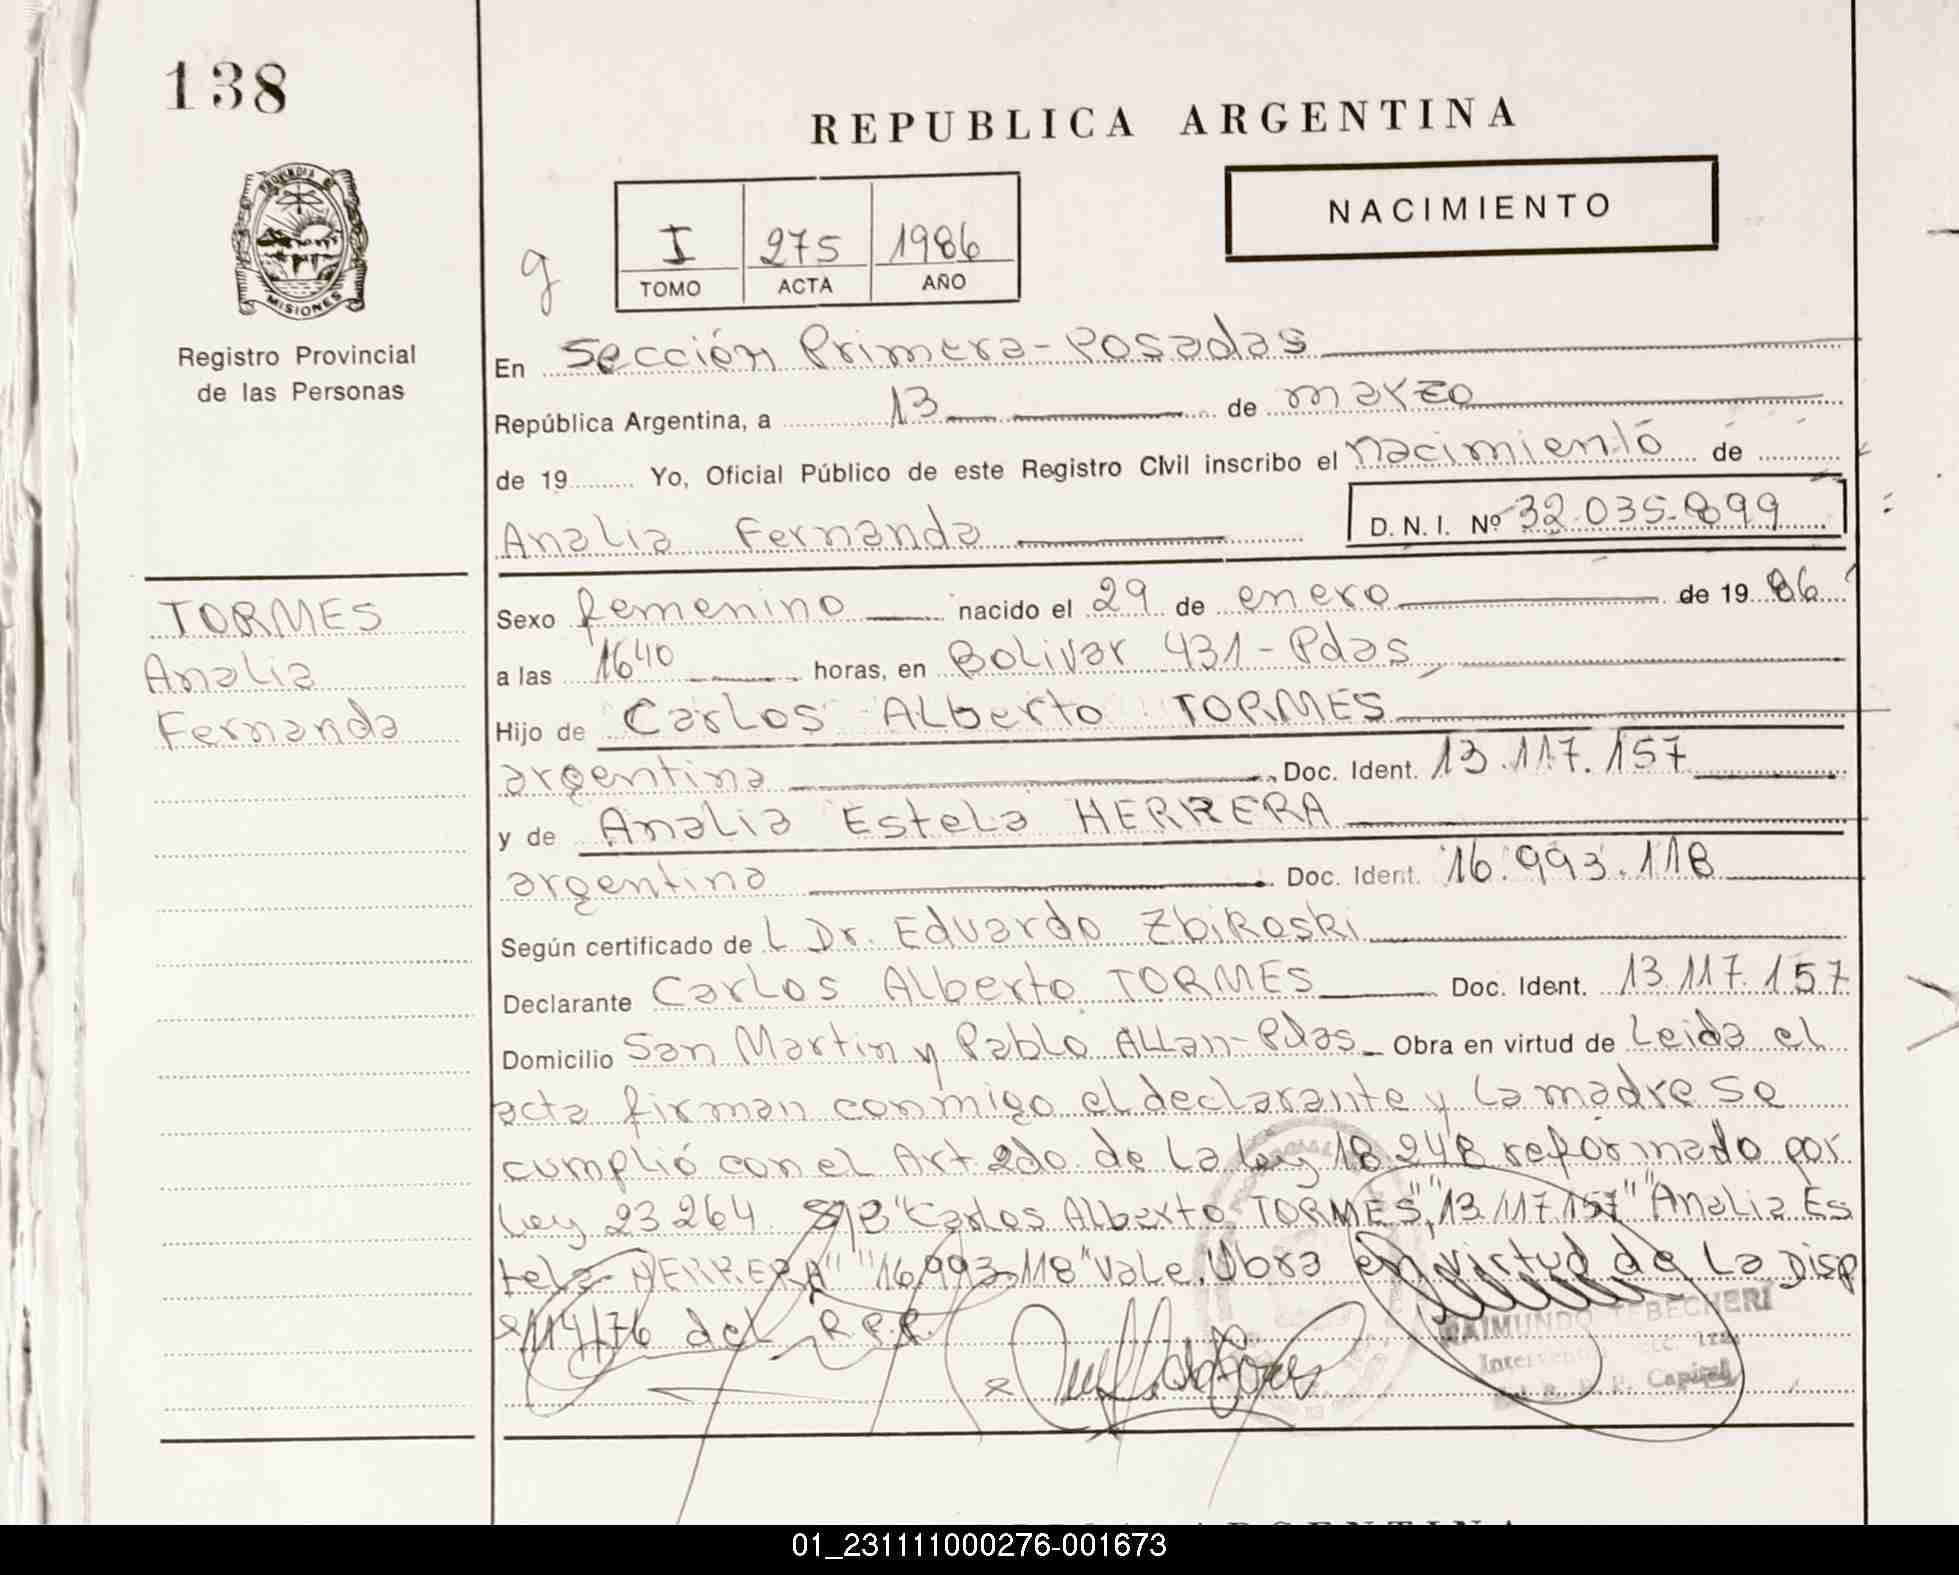 138
REPUBLICA ARGENTINA
PROVINCIA DE
MISIONES
Registro Provincial
de las Personas
NACIMIENTO
g
I 275 1986
TOMO ACTA AÑO
En Sección Primera-Posadas
República Argentina, a 13 de marzo
de 19 Yo, Oficial Público de este Registro Civil inscribo el nacimiento de
Analia Fernanda D.N.I. Nº 32.035.899
TORMES
Analia
Fernanda
Sexo femenino nacido el 29 de enero de 1986
a las 1640 horas, en Bolivar 431-Pdas,
Hijo de Carlos Alberto TORMES
argentina Doc. Ident. 13.117.157
y de Analia Estela HERRERA
argentina Doc. Ident. 16.993.118
Según certificado de L Dr. Eduardo ZbiRoski
Declarante Carlos Alberto TORMES Doc. Ident. 13.117.157
Domicilio San Martin y Pablo Allan-Pdas Obra en virtud de Leida el
acta firman conmigo el declarante y la madre se
cumplió con el Art 2do de la ley 18 248 reformado por
ley 23 264 S/B "Carlos Alberto TORMES", "13 117 157" "Analia Es
tela HERRERA" "16.993.118" Vale. Obra en virtud de la Disp
114/76 del R.P.P.
RAIMUNDO TEBECHERI
Capital
ARGENTINA
01_231111000276-001673